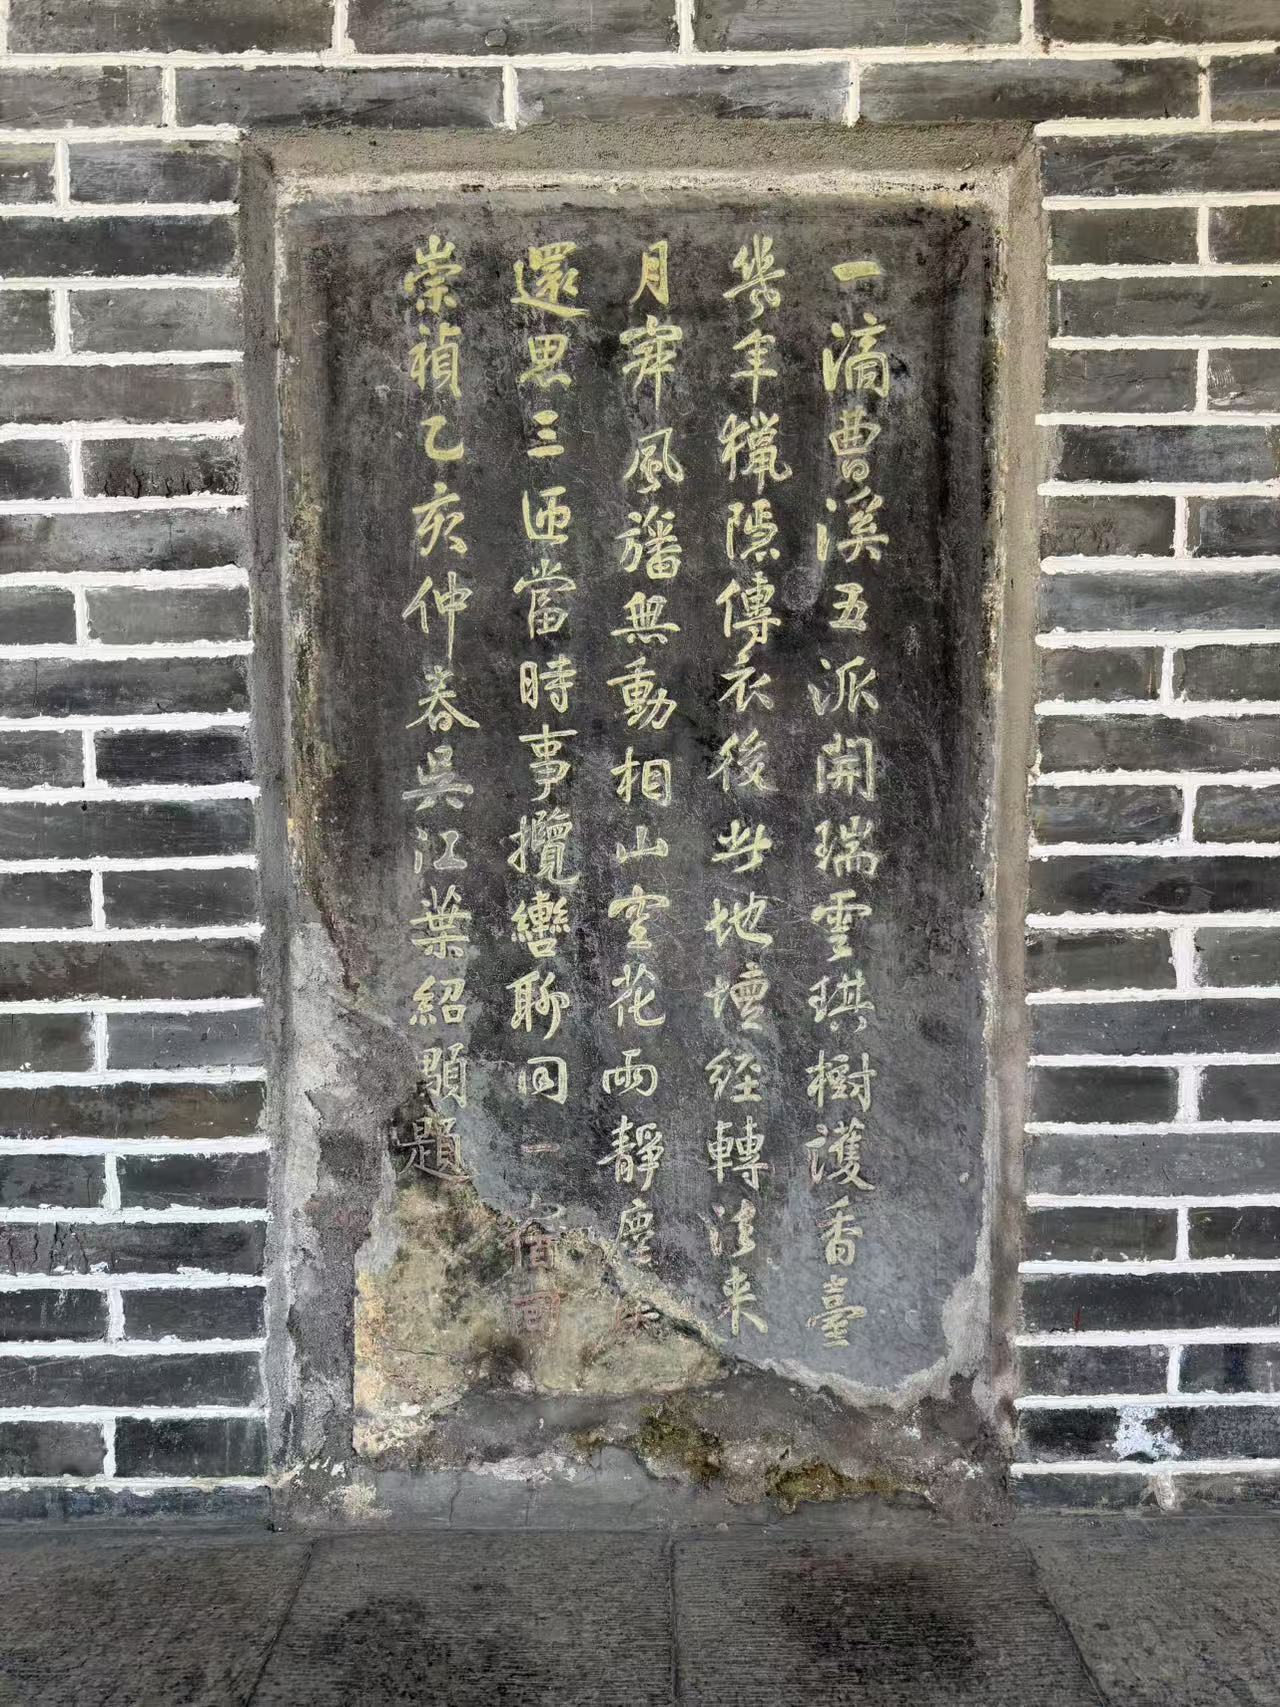 一滴曹溪五派開瑞雲琪樹護香臺
幾年獵隱傳衣後此地壇經轉法来
月寂風旛無動相山空花雨靜塵
還思三匝當時事攬轡聊同一宿回
崇禎乙亥仲春吳江葉紹顒題